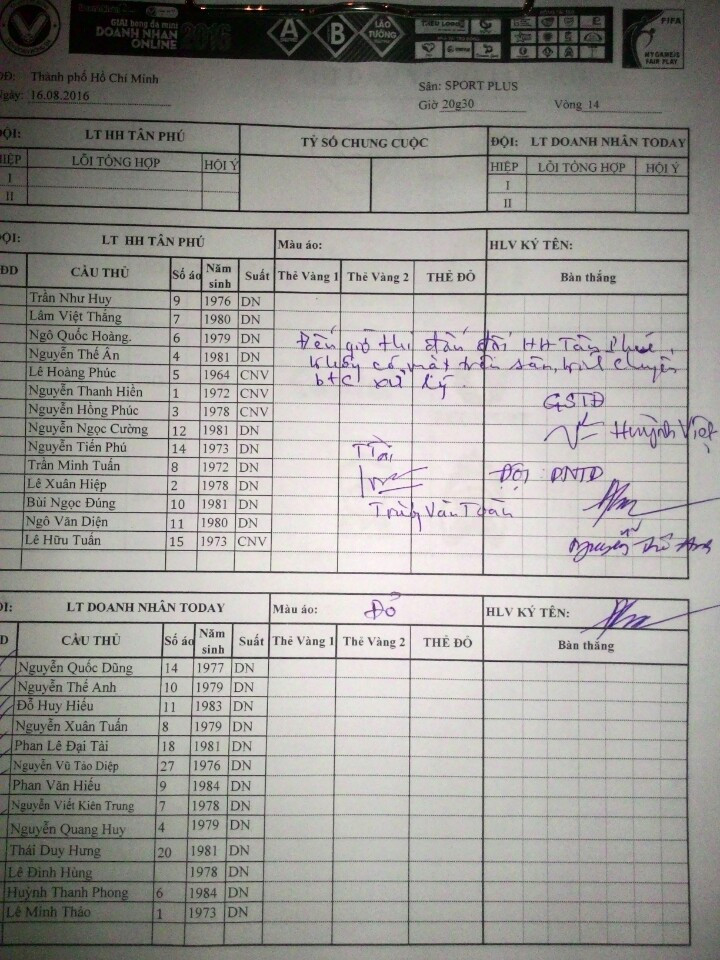 GIẢI bóng đá mini
DOANH NHÂN
ONLINE 2016
A B LÀO TƯỜNG
FIFA
MY GAME IS
FAIR PLAY
Thành phố Hồ Chí Minh
16.08.2016
Sân: SPORT PLUS
Giờ 20g30 Vòng 14
LT HH TÂN PHÚ TỶ SỐ CHUNG CUỘC ĐỘI: LT DOANH NHÂN TODAY
HIỆP LỖI TỔNG HỢP HỘI Ý HIỆP LỖI TỔNG HỢP HỘI Ý
I I
II II
LT HH TÂN PHÚ Màu áo: HLV KÝ TÊN:
CẦU THỦ Số áo Năm sinh Suất Thẻ Vàng 1 Thẻ Vàng 2 THẺ ĐỎ Bàn thắng
Trần Như Huy 9 1976 DN
Lâm Việt Thắng 7 1980 DN
Ngô Quốc Hoàng. 6 1979 DN
Nguyễn Thế Ân 4 1981 DN
Lê Hoàng Phúc 5 1964 CNV
Nguyễn Thanh Hiền 1 1972 CNV
Nguyễn Hồng Phúc 3 1978 CNV
Nguyễn Ngọc Cường 12 1981 DN
Nguyễn Tiến Phú 14 1973 DN
Trần Minh Tuấn 8 1972 DN
Lê Xuân Hiệp 2 1978 DN
Bùi Ngọc Đúng 10 1981 DN
Ngô Văn Diện 11 1980 DN
Lê Hữu Tuấn 15 1973 CNV
Đến giờ thi đấu đội HH Tân Phú,
không có mặt trên sân, chuyển
btc xử lý.
GSTĐ
Huỳnh Việt
TTài
Đội DNTD
Văn Toàn
Nguyễn Thế Anh
LT DOANH NHÂN TODAY Màu áo: Đỏ HLV KÝ TÊN:
CẦU THỦ Số áo Năm sinh Suất Thẻ Vàng 1 Thẻ Vàng 2 THẺ ĐỎ Bàn thắng
Nguyễn Quốc Dũng 14 1977 DN
Nguyễn Thế Anh 10 1979 DN
Đỗ Huy Hiếu 11 1983 DN
Nguyễn Xuân Tuấn 8 1979 DN
Phan Lê Đại Tài 18 1981 DN
Nguyễn Vũ Táo Diệp 27 1976 DN
Phan Văn Hiếu 9 1984 DN
Nguyễn Viết Kiên Trung 7 1978 DN
Nguyễn Quang Huy 4 1979 DN
Thái Duy Hưng 20 1981 DN
Lê Đình Hùng 1978 DN
Huỳnh Thanh Phong 6 1984 DN
Lê Minh Thảo 1 1973 DN